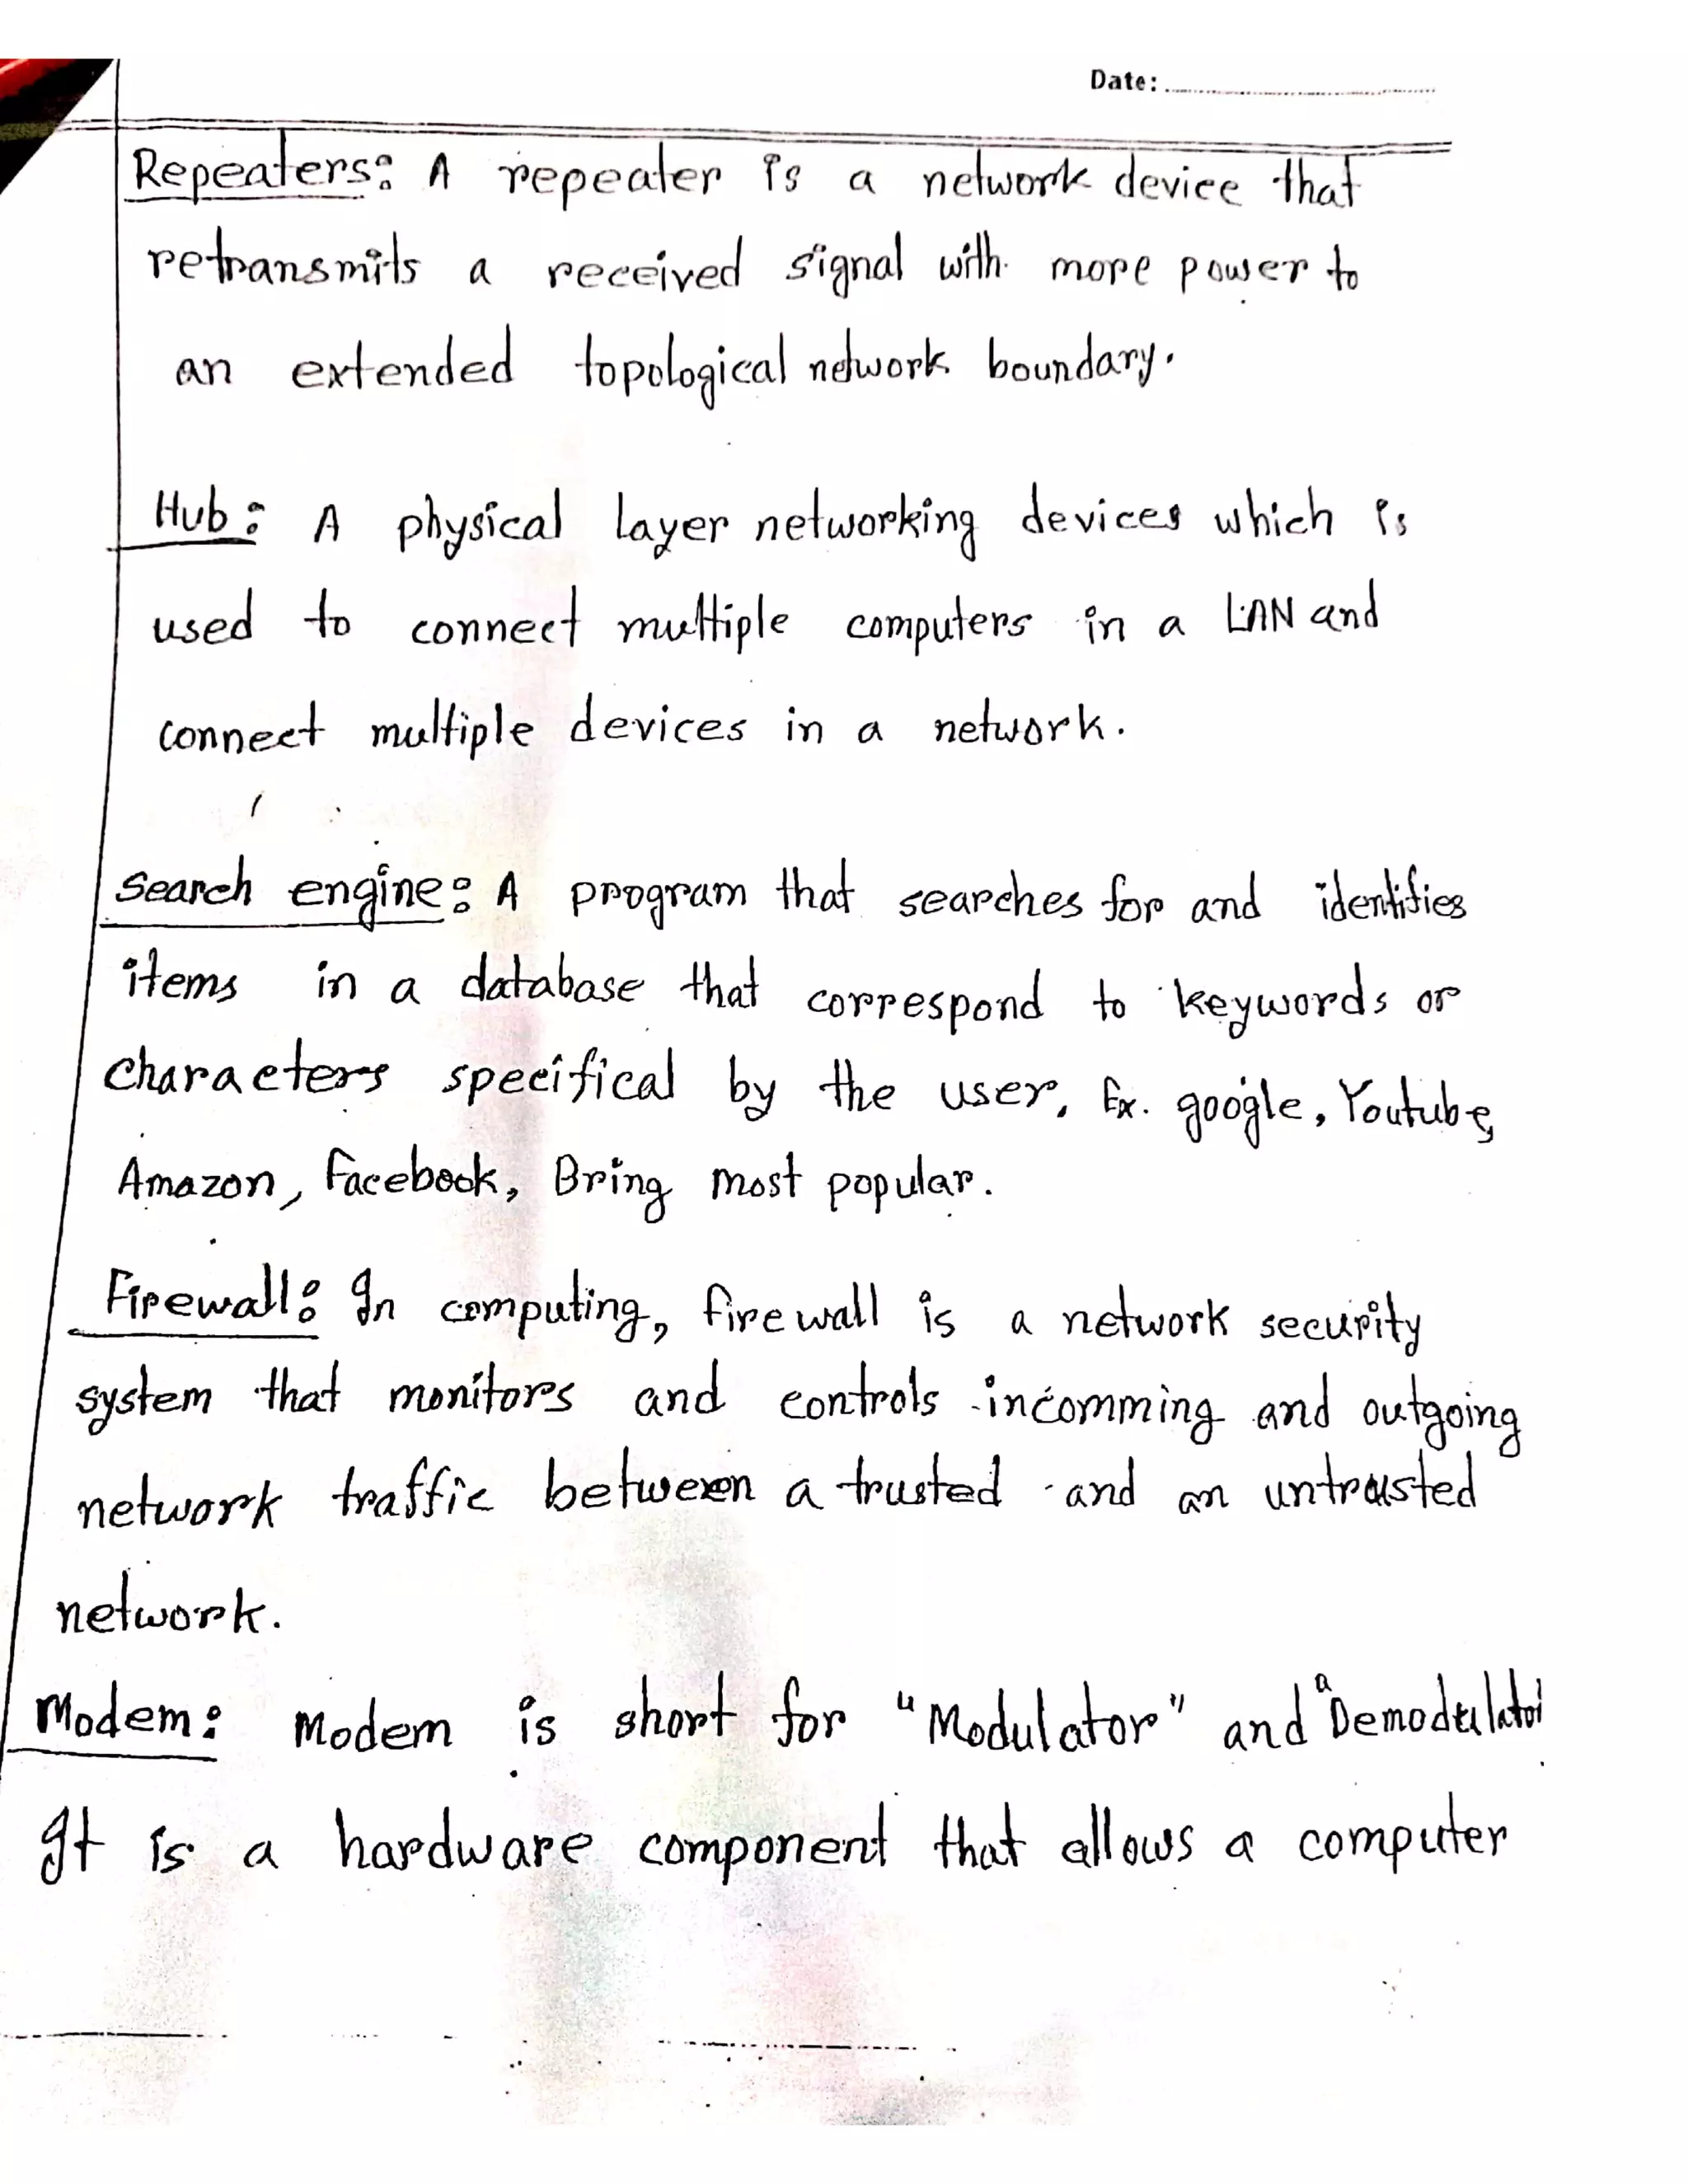 Date:
Repeaters: A repeater is a network device that
retransmits a received signal with more power to
an extended topological network boundary.
Hub: A physical layer networking devices which is
used to connect multiple computers in a LAN and
connect multiple devices in a network.
Search engine: A program that searches for and identifies
items in a database that correspond to keywords or
characters specifical by the user, Ex. google, Youtube,
Amazon, Facebook, Bring most popular.
Firewall: In computing, firewall is a network security
system that monitors and controls incomming and outgoing
network traffic between a trusted and an untrusted
network.
Modem: Modem is short for "Modulator" and "Demodulator
It is a hardware component that allows a computer